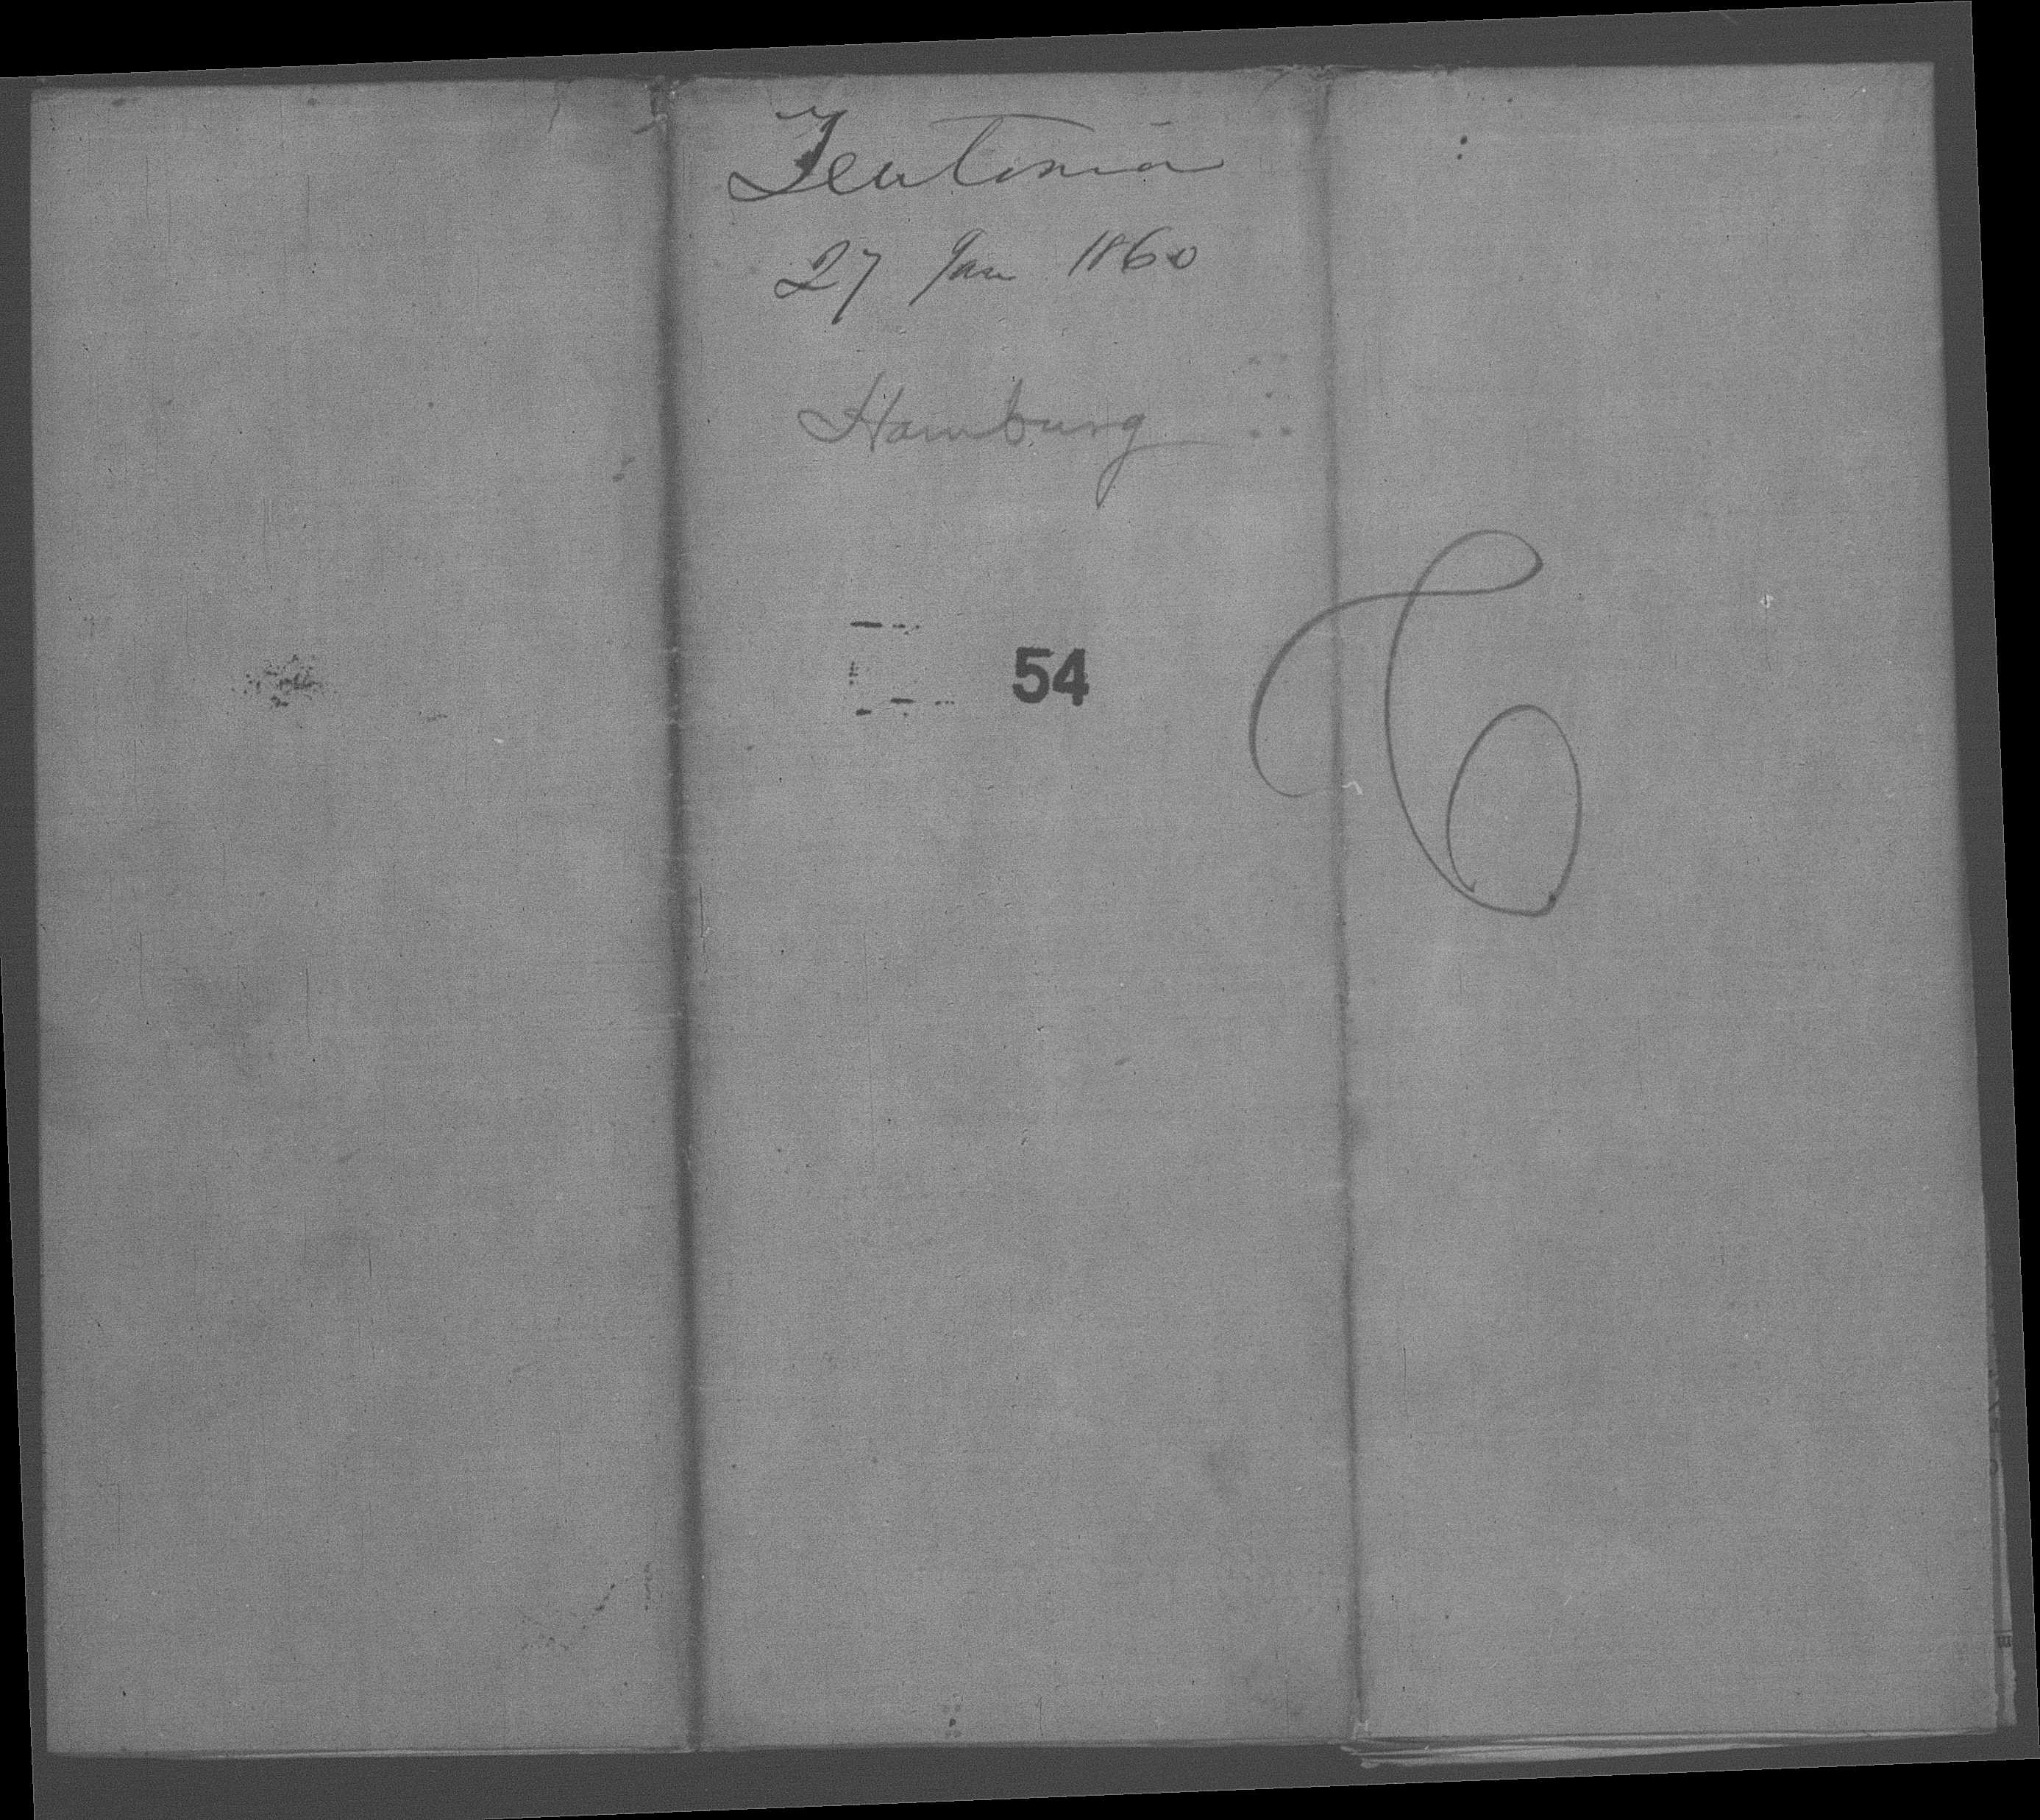 Teutonia
27 Jan 1860
Hamburg
54